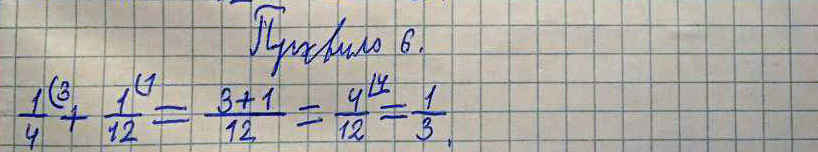 Правило 6.
1/4 (3 + 1/12 (1 = 3+1/12 = 4/12 |4 = 1/3.